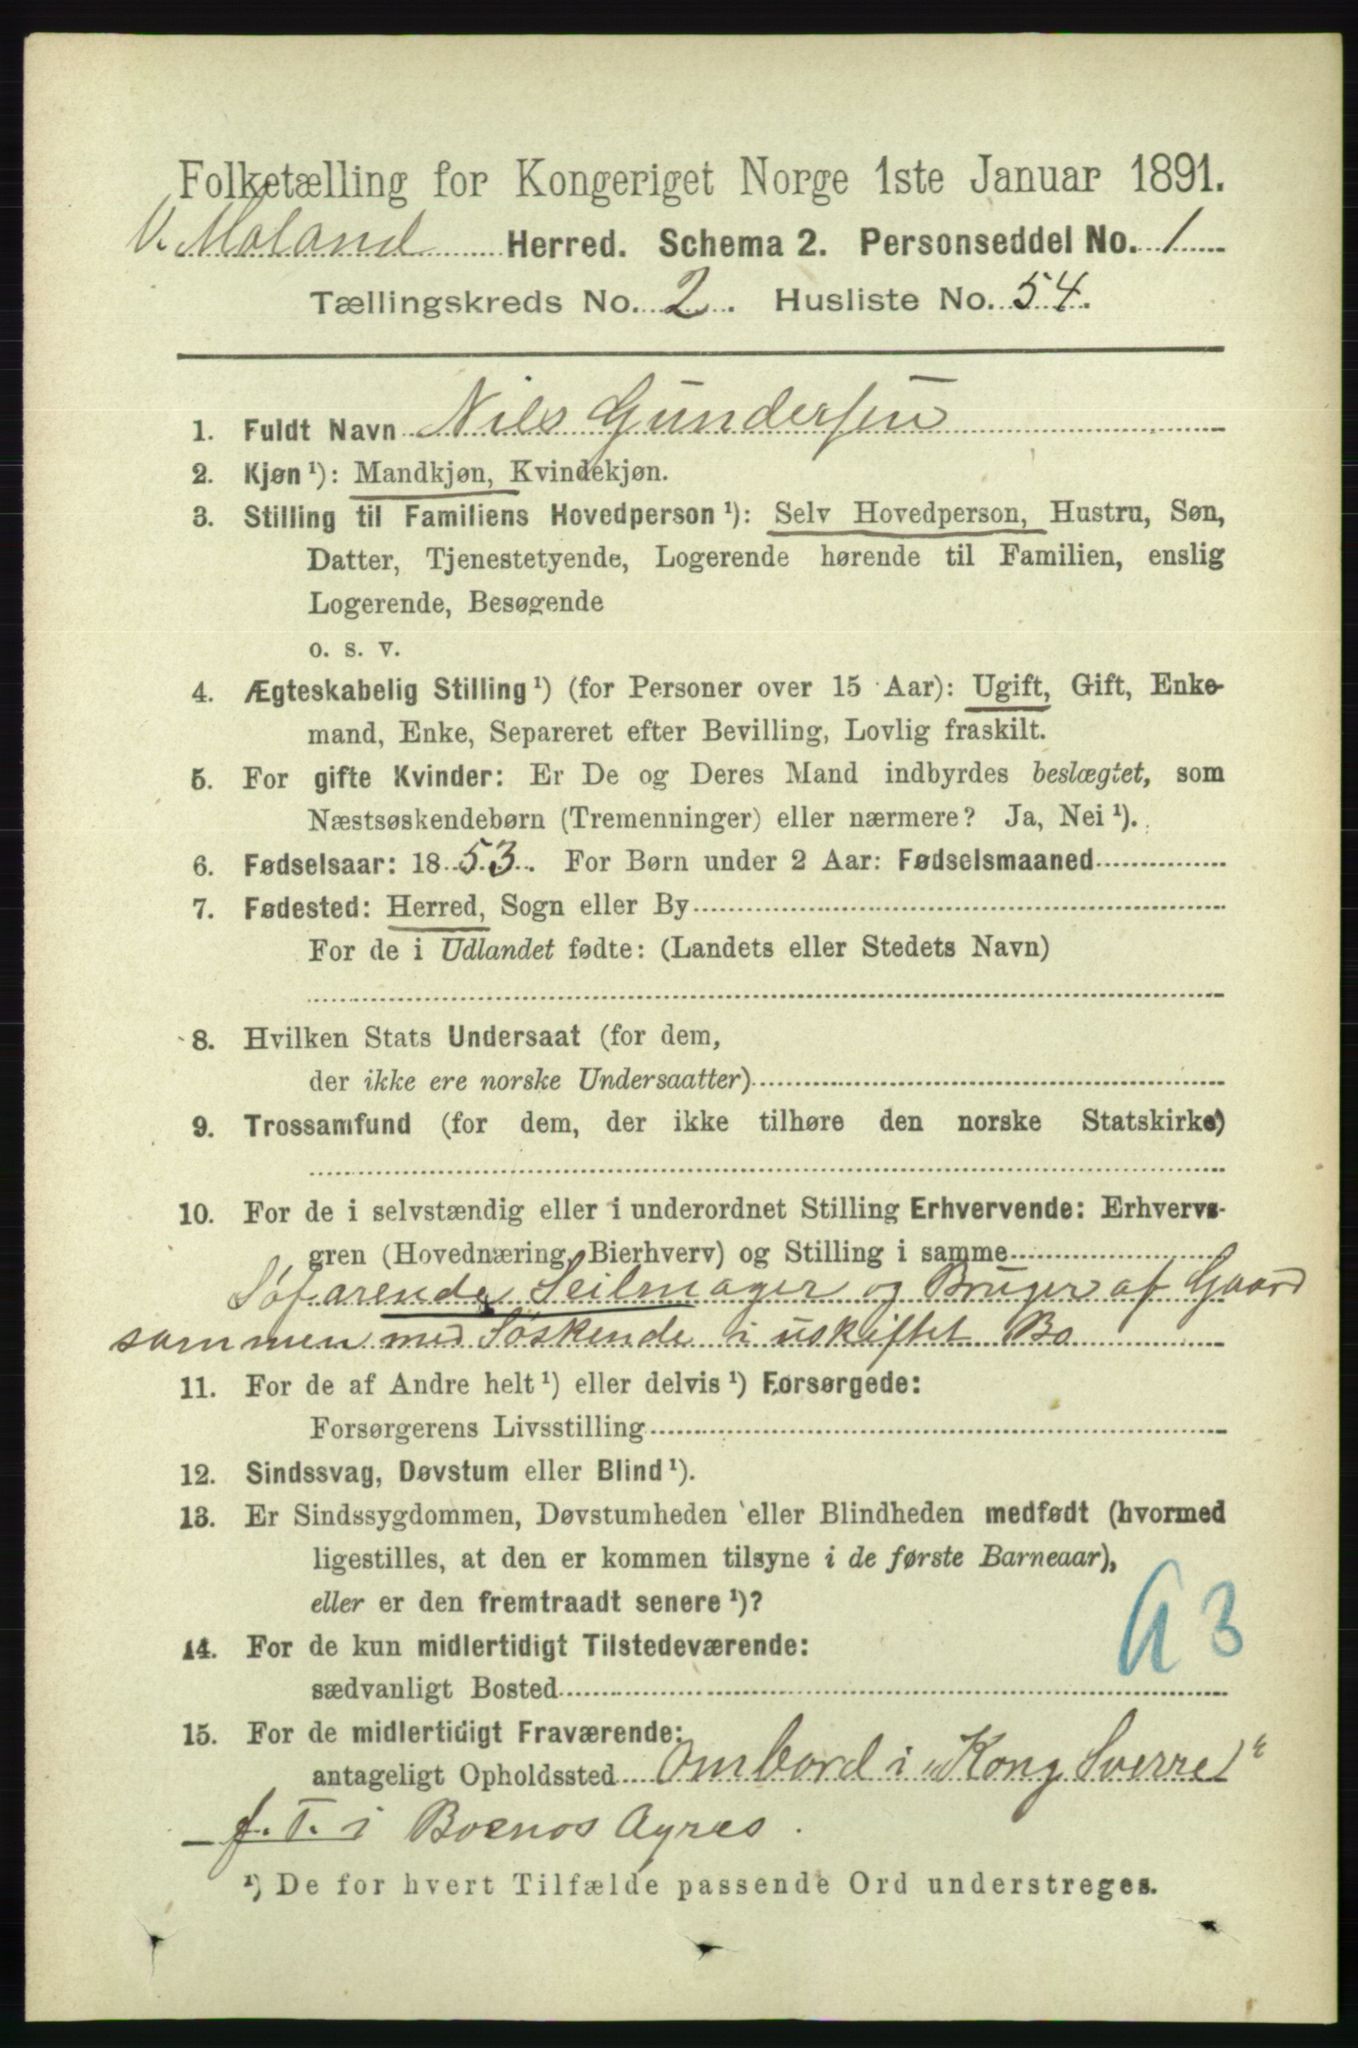 Folketælling for Kongeriget Norge 1ste Januar 1891.
V. Moland Herred. Schema 2. Personseddel No. 1
Tællingskreds No. 2. Husliste No. 54.
1. Fuldt Navn Nils Gundersen
2. Kjøn¹): Mandkjøn, Kvindekjøn.
3. Stilling til Familiens Hovedperson¹): Selv Hovedperson, Hustru, Søn,
Datter, Tjenestetyende, Logerende hørende til Familien, enslig
Logerende, Besøgende
o. s. v.
4. Ægteskabelig Stilling¹) (for Personer over 15 Aar): Ugift, Gift, Enke-
mand, Enke, Separeret efter Bevilling, Lovlig fraskilt.
5. For gifte Kvinder: Er De og Deres Mand indbyrdes beslægtet, som
Næstsøskendebørn (Tremenninger) eller nærmere? Ja, Nei¹).
6. Fødselsaar: 1853. For Børn under 2 Aar: Fødselsmaaned
7. Fødested: Herred, Sogn eller By
For de i Udlandet fødte: (Landets eller Stedets Navn)
8. Hvilken Stats Undersaat (for dem,
der ikke ere norske Undersaatter)
9. Trossamfund (for dem, der ikke tilhøre den norske Statskirke)
10. For de i selvstændig eller i underordnet Stilling Erhvervende: Erhvervs-
gren (Hovednæring, Bierhverv) og Stilling i samme
Søfarende Seilmager og Bruger af Gaard
sammen med Søskende i uskiftet Bo
11. For de af Andre helt¹) eller delvis¹) Forsørgede:
Forsørgerens Livsstilling
12. Sindssvag, Døvstum eller Blind¹).
13. Er Sindssygdommen, Døvstumheden eller Blindheden medfødt (hvormed
ligestilles, at den er kommen tilsyne i de første Barneaar),
eller er den fremtraadt senere¹)?
14. For de kun midlertidigt Tilstedeværende:
sædvanligt Bosted
15. For de midlertidigt Fraværende:
antageligt Opholdssted ombord i „Kong Sverre"
f. T. i Boenos Ayres.
¹) De for hvert Tilfælde passende Ord understreges.